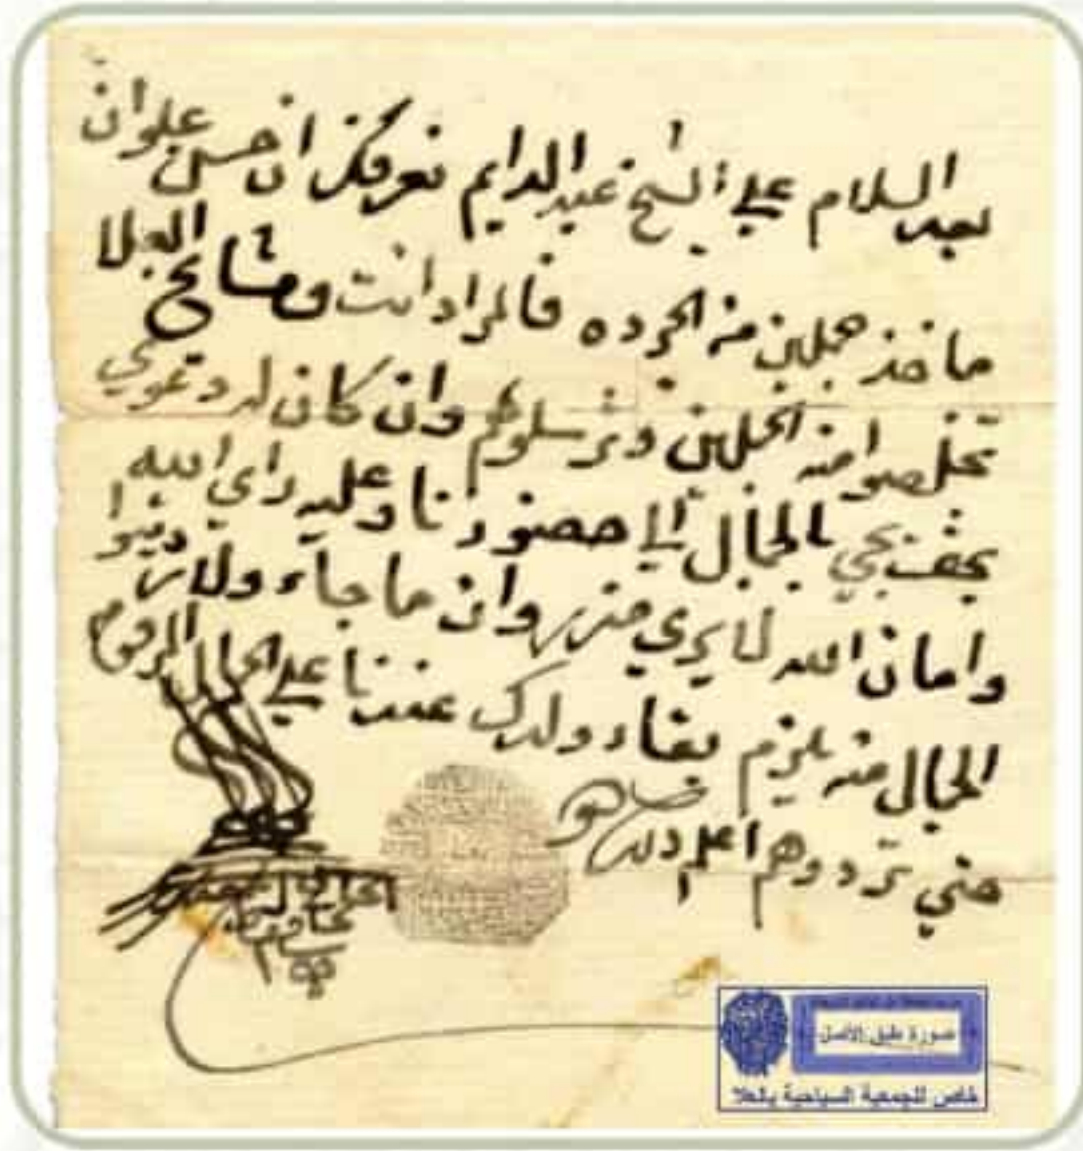 بعد السلام علي الشيخ عبد الدايم نعرفك ان حسن علوان
ماخذ جملين من الجرده فالمراد انت ومشايخ العلا
تخلصوا منه الجملين وترسلوهم وان كان له دعوي
بحقه يجي بالجمال الي حضورنا وعليه راي الله
وامان الله لما يري منه وان ما جاء ولا
الجمال منه يلزم بقاء ولدك عندنا علي الحال المرقوم
حتي تردوهم اعلم ذلك
صورة طبق الأصل
خاص للجمعية السياحية بالعلا